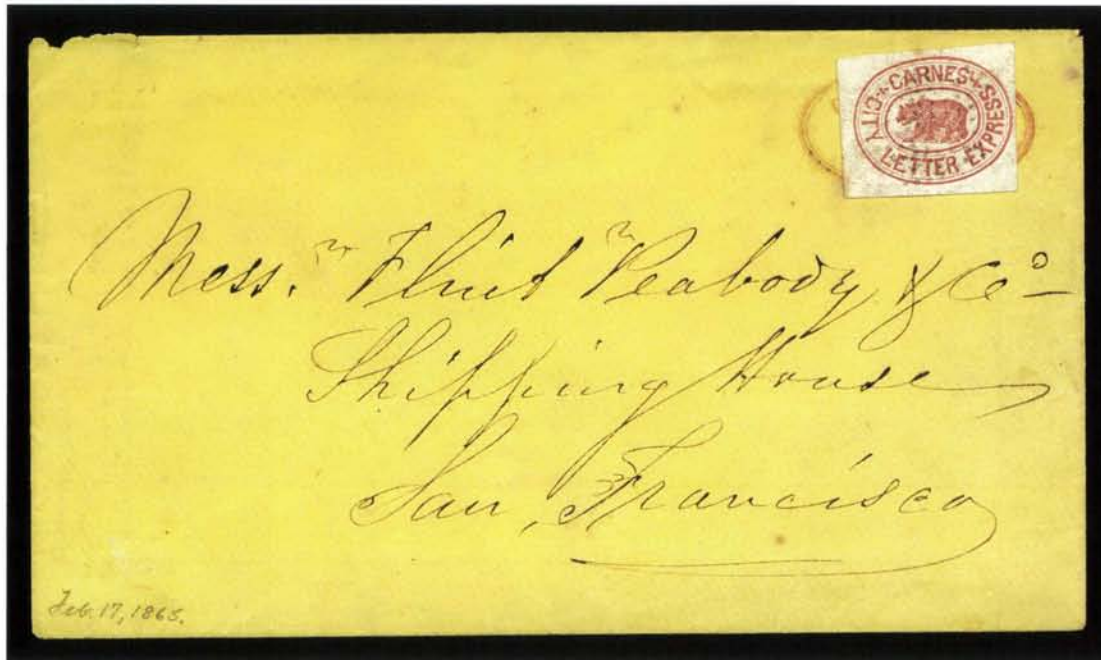 CARNES' CITY LETTER EXPRESS
Mess.rs Flint Peabody & Co
Shipping House
San, Francisco
Feb. 17, 1865.